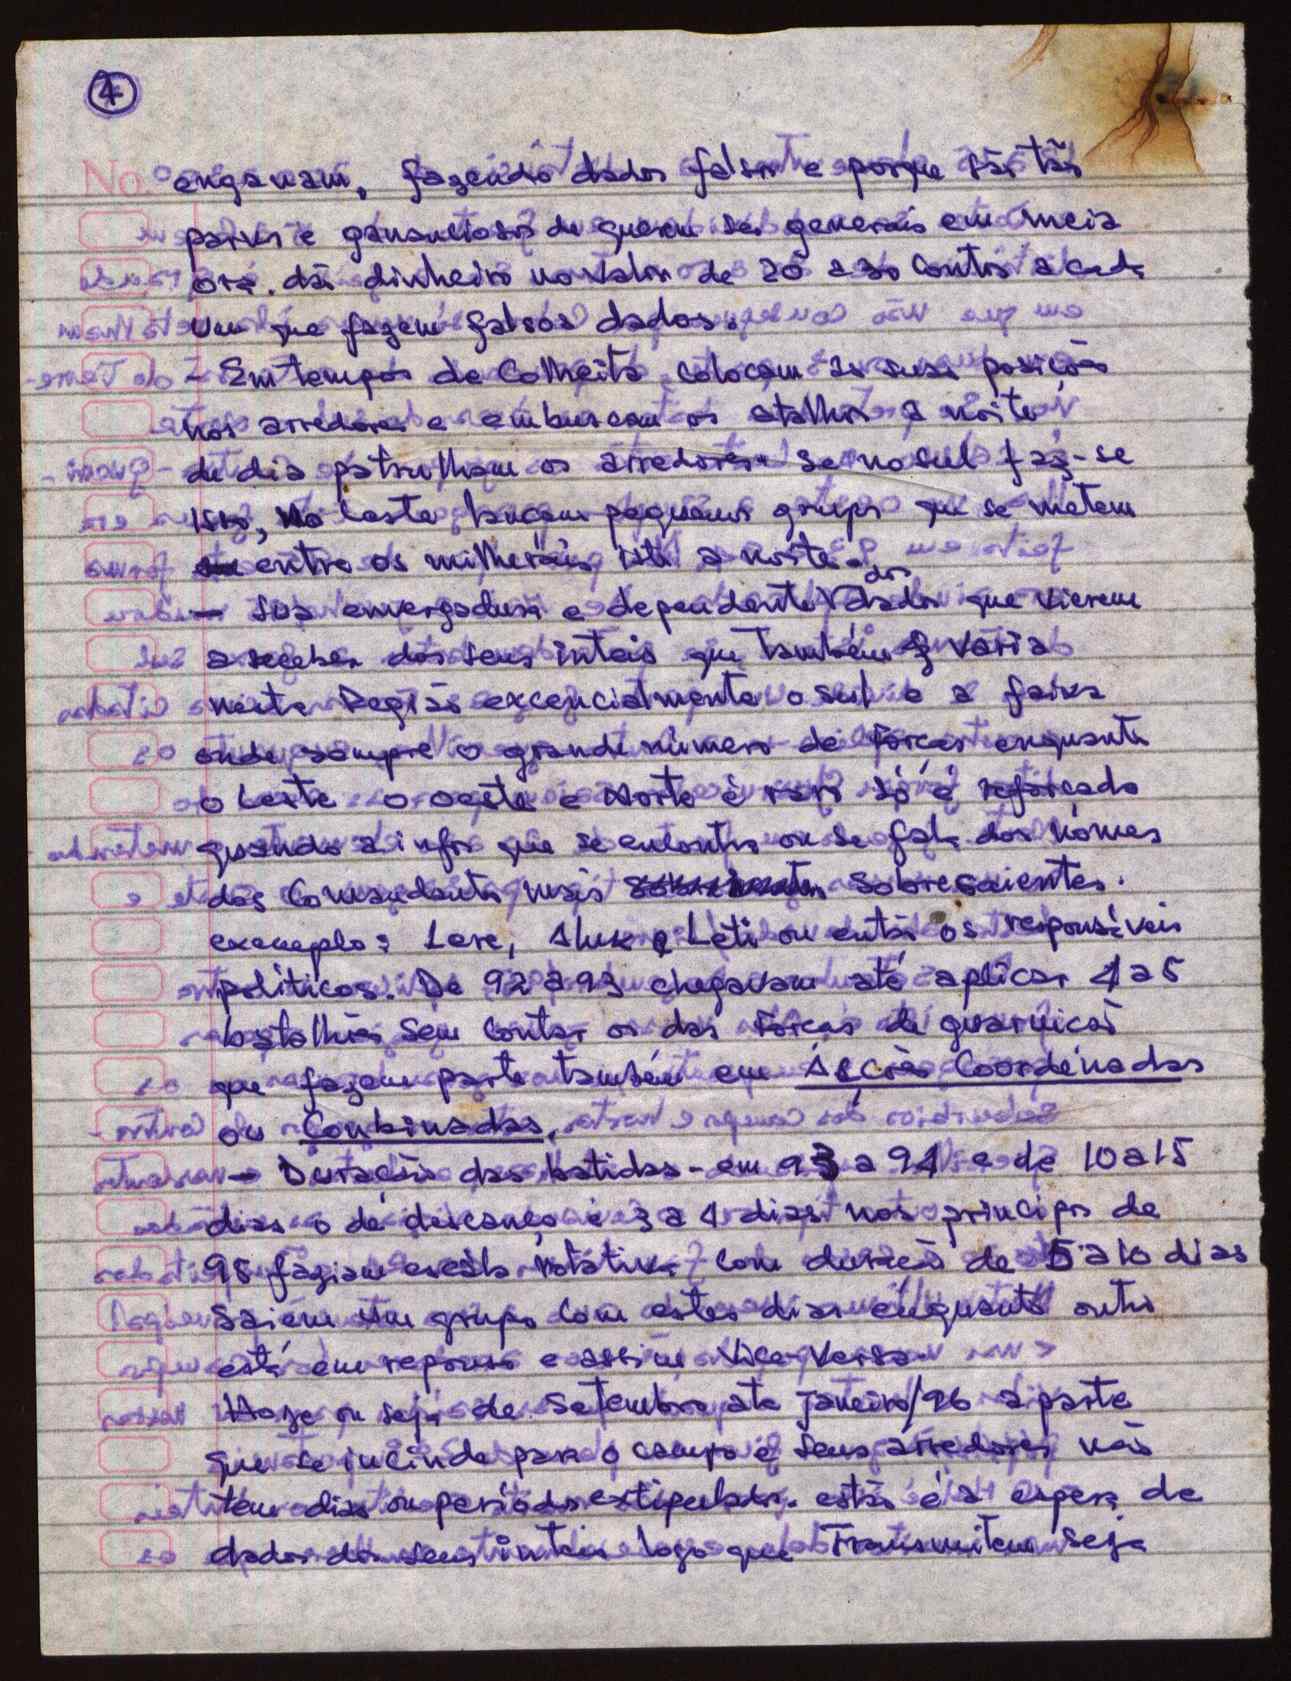 4
No
enganam, fazendo dados falsos e porque são tão
parvos e gananciosos de querem ser generais em meia
ora. dão dinheiro no valor de 20 a 30 contos a cada
um que fazem falsos dados.
- Em tempos de Colheita colocam as suas posições
nos arredores e emburcam os atalhos a noite
de dia patrulham os arredores. se no sul faz-se
isto, no Leste lançam pequenos grupos que se metem
entre os milherais isto a noite.
- sua envergadura e dependente dos dados que vierem
a receber dos seus inteis que também varia
nesta Região excencialmente o sul e a faixa
onde sempre o grande número de Forças enquanto
o Leste o oeste e Norte é raro só é reforçado
quando a infor que se encontra ou se fala dos nomes
dos Comandantes mais sobresaientes.
exemplo: Lere, Aluk e Leti ou então os responsáveis
políticos. De 92 a 93 chegavam até aplicar 4 a 5
batalhões sem contar os das Forças de guarnição
que fazem parte também em Acções Coordenadas
ou Combinadas.
- Duração das batidas - em 93 a 94 e de 10 a 15
dias o de descanço é 3 a 4 dias nos principos de
95 faziam escala rotativa com duração de 5 a 10 dias
Saiem um grupo com estes dias enquanto outro
está em repouso e assim Vice-Versa.
Hoze ou seja de Setembro ate janeiro/96 a parte
que se incinde para o campo e seus arredores não
tem dias ou periodo extipulado. estão é a espera de
dados dos seus inteis logo que Transmitem seja